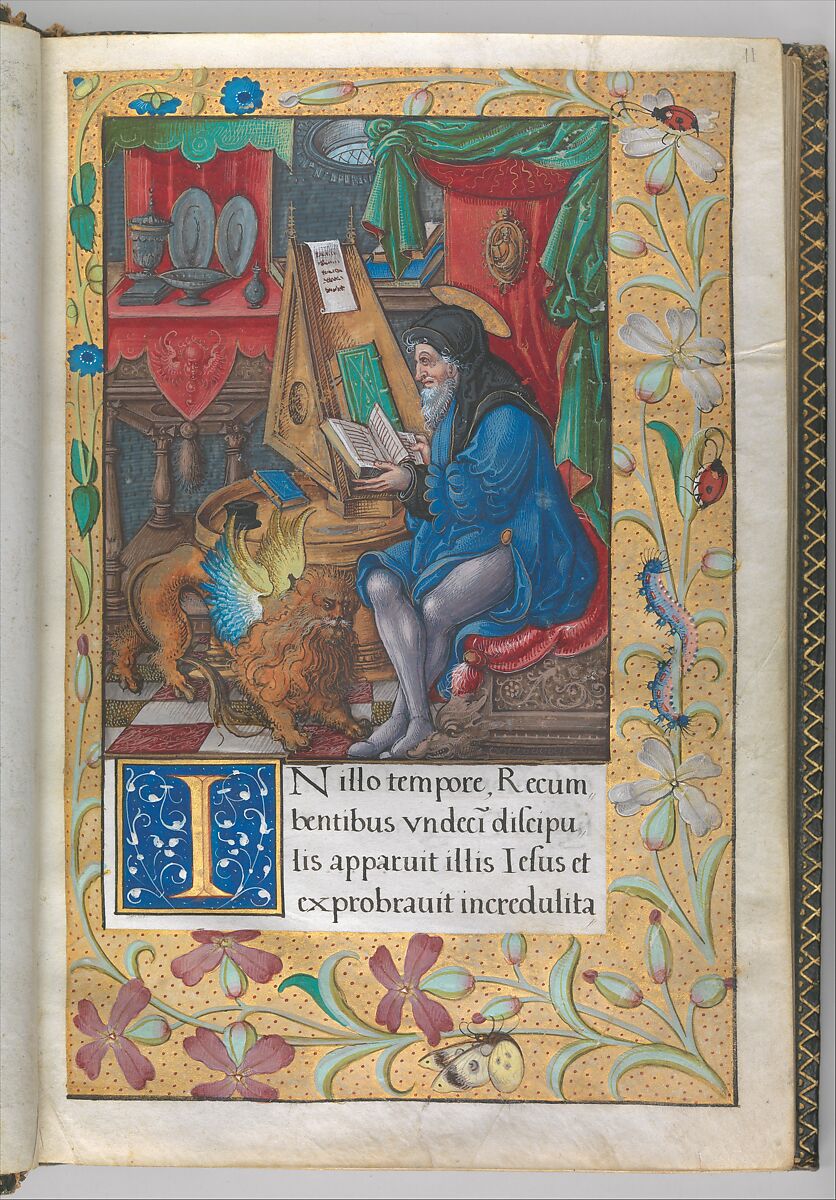 11
IN illo tempore, Recum„
bentibus vndecĩ discipu„
lis apparuit illis Iesus et
exprobrauit incredulita„